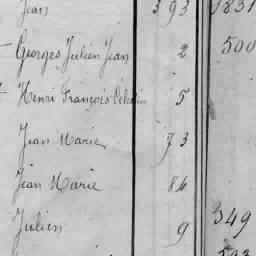 Jean 393 1831
Georges Julien Jean 2 500
Henri François 5
Jean Marie 73
Jean Marie 86
Julien 9 349
593